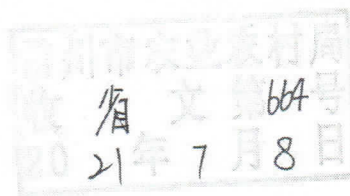 市农业农村局
收 省 文 第 664 号
2021 年 7 月 8 日